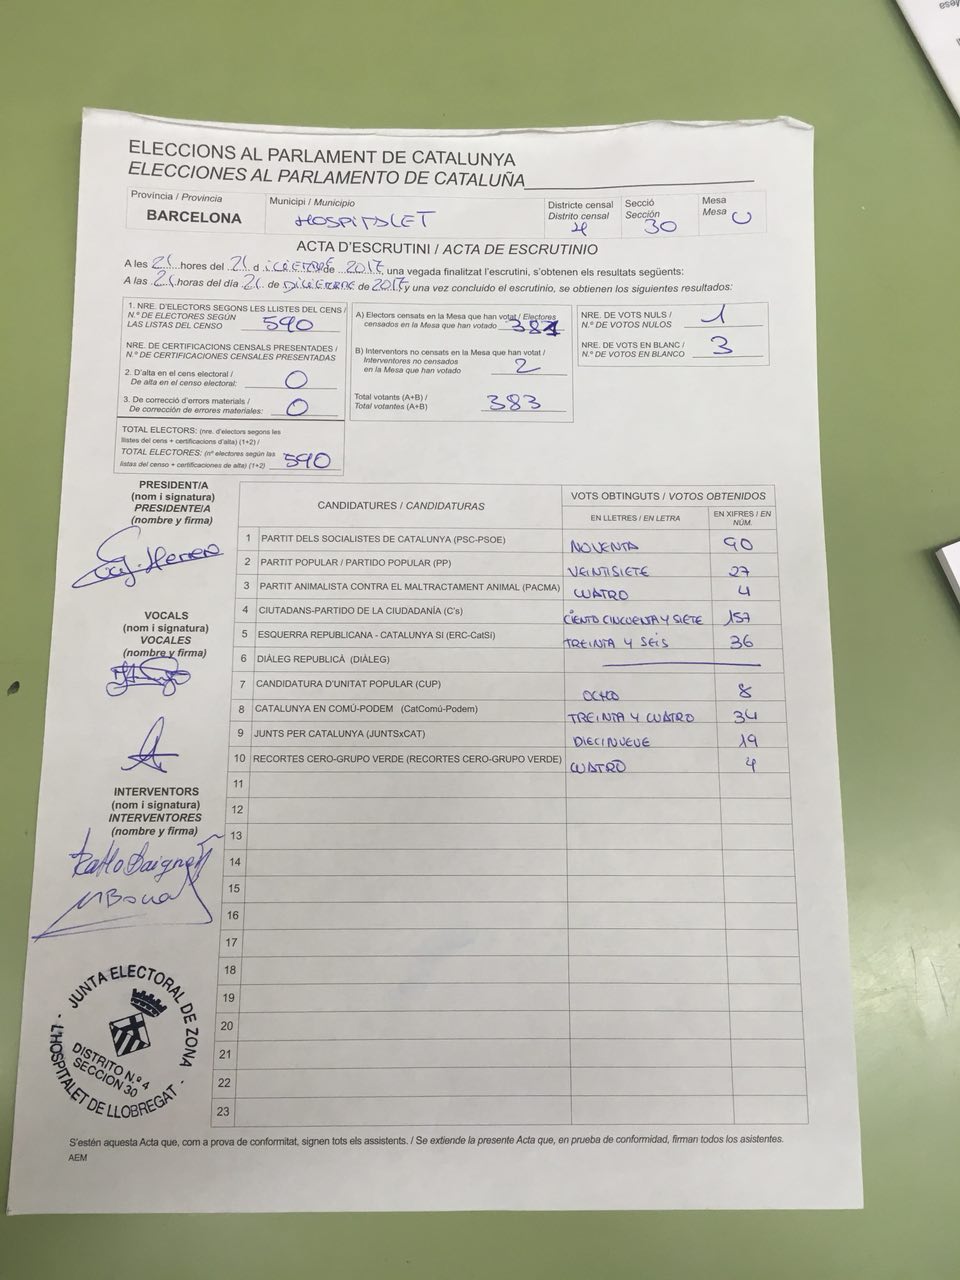 ELECCIONS AL PARLAMENT DE CATALUNYA
ELECCIONES AL PARLAMENTO DE CATALUÑA
Província / Provincia
BARCELONA
Municipi / Municipio
HOSPITALET
Districte censal
Distrito censal
4
Secció
Sección
30
Mesa
Mesa
U
ACTA D'ESCRUTINI / ACTA DE ESCRUTINIO
A les 21 hores del 21 d iciembre de 2017, una vegada finalitzat l'escrutini, s'obtenen els resultats següents:
A las 21 horas del día 21 de DICIEMBRE de 2017 y una vez concluido el escrutinio, se obtienen los siguientes resultados:
1. NRE. D'ELECTORS SEGONS LES LLISTES DEL CENS /
N.º DE ELECTORES SEGÚN
LAS LISTAS DEL CENSO 590
NRE. DE CERTIFICACIONS CENSALS PRESENTADES /
N.º DE CERTIFICACIONES CENSALES PRESENTADAS
2. D'alta en el cens electoral /
De alta en el censo electoral: 0
3. De correcció d'errors materials /
De corrección de errores materiales: 0
TOTAL ELECTORS: (nre. d'electors segons les
llistes del cens + certificacions d'alta) (1+2) /
TOTAL ELECTORES: (nº electores según las
listas del censo + certificaciones de alta) (1+2) 590
A) Electors censats en la Mesa que han votat / Electores
censados en la Mesa que han votado 381
B) Interventors no censats en la Mesa que han votat /
Interventores no censados
en la Mesa que han votado 2
Total votants (A+B) /
Total votantes (A+B) 383
NRE. DE VOTS NULS /
N.º DE VOTOS NULOS 1
NRE. DE VOTS EN BLANC /
N.º DE VOTOS EN BLANCO 3
PRESIDENT/A
(nom i signatura)
PRESIDENTE/A
(nombre y firma)
VOCALS
(nom i signatura)
VOCALES
(nombre y firma)
INTERVENTORS
(nom i signatura)
INTERVENTORES
(nombre y firma)
CANDIDATURES / CANDIDATURAS
VOTS OBTINGUTS / VOTOS OBTENIDOS
EN LLETRES / EN LETRA
EN XIFRES / EN NÚM.
1 PARTIT DELS SOCIALISTES DE CATALUNYA (PSC-PSOE) NOVENTA 90
2 PARTIT POPULAR / PARTIDO POPULAR (PP) VEINTISIETE 27
3 PARTIT ANIMALISTA CONTRA EL MALTRACTAMENT ANIMAL (PACMA) CUATRO 4
4 CIUTADANS-PARTIDO DE LA CIUDADANÍA (C's) CIENTO CINCUENTA Y SIETE 157
5 ESQUERRA REPUBLICANA - CATALUNYA SÍ (ERC-CatSí) TREINTA Y SEIS 36
6 DIÀLEG REPUBLICÀ (DIÀLEG)
7 CANDIDATURA D'UNITAT POPULAR (CUP) OCHO 8
8 CATALUNYA EN COMÚ-PODEM (CatComú-Podem) TREINTA Y CUATRO 34
9 JUNTS PER CATALUNYA (JUNTSxCAT) DIECINUEVE 19
10 RECORTES CERO-GRUPO VERDE (RECORTES CERO-GRUPO VERDE) CUATRO 4
11
12
13
14
15
16
17
18
19
20
21
22
23
JUNTA ELECTORAL DE ZONA
DISTRITO N.º 4
SECCION 30
L'HOSPITALET DE LLOBREGAT
S'estén aquesta Acta que, com a prova de conformitat, signen tots els assistents. / Se extiende la presente Acta que, en prueba de conformidad, firman todos los asistentes.
AEM